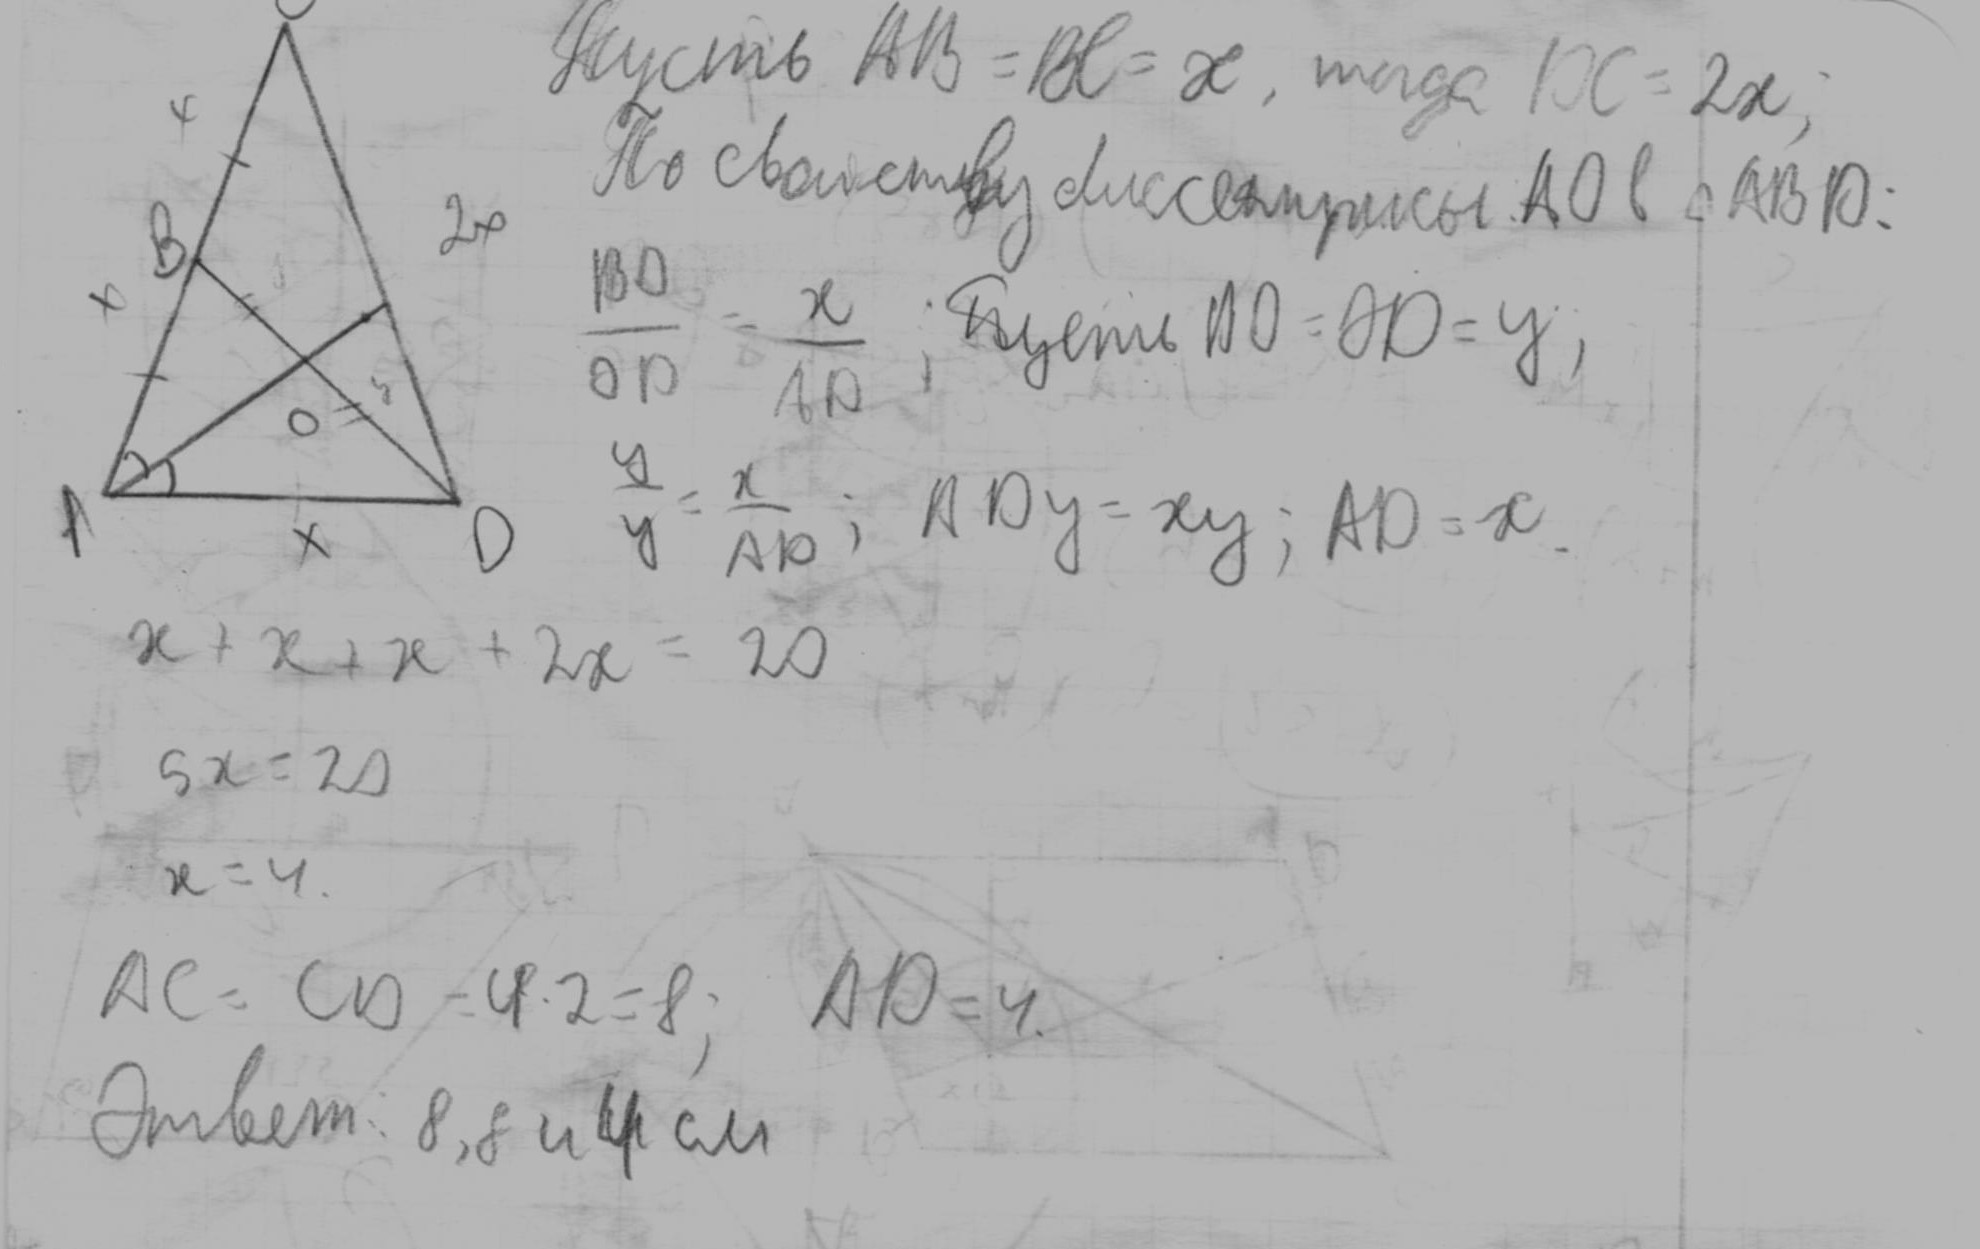 C
Пусть AB = BC = x, тогда DC = 2x;
По свойству биссектрисы AO в △ABD:
x
B
2x
x
BO/OD = x/AD; Пусть BO = OD = y;
O
y
y/y = x/AD; ADy = xy; AD = x.
A
x
D
x + x + x + 2x = 20
5x = 20
x = 4.
AC = CD = 4·2 = 8; AD = 4.
Ответ: 8, 8 и 4 см